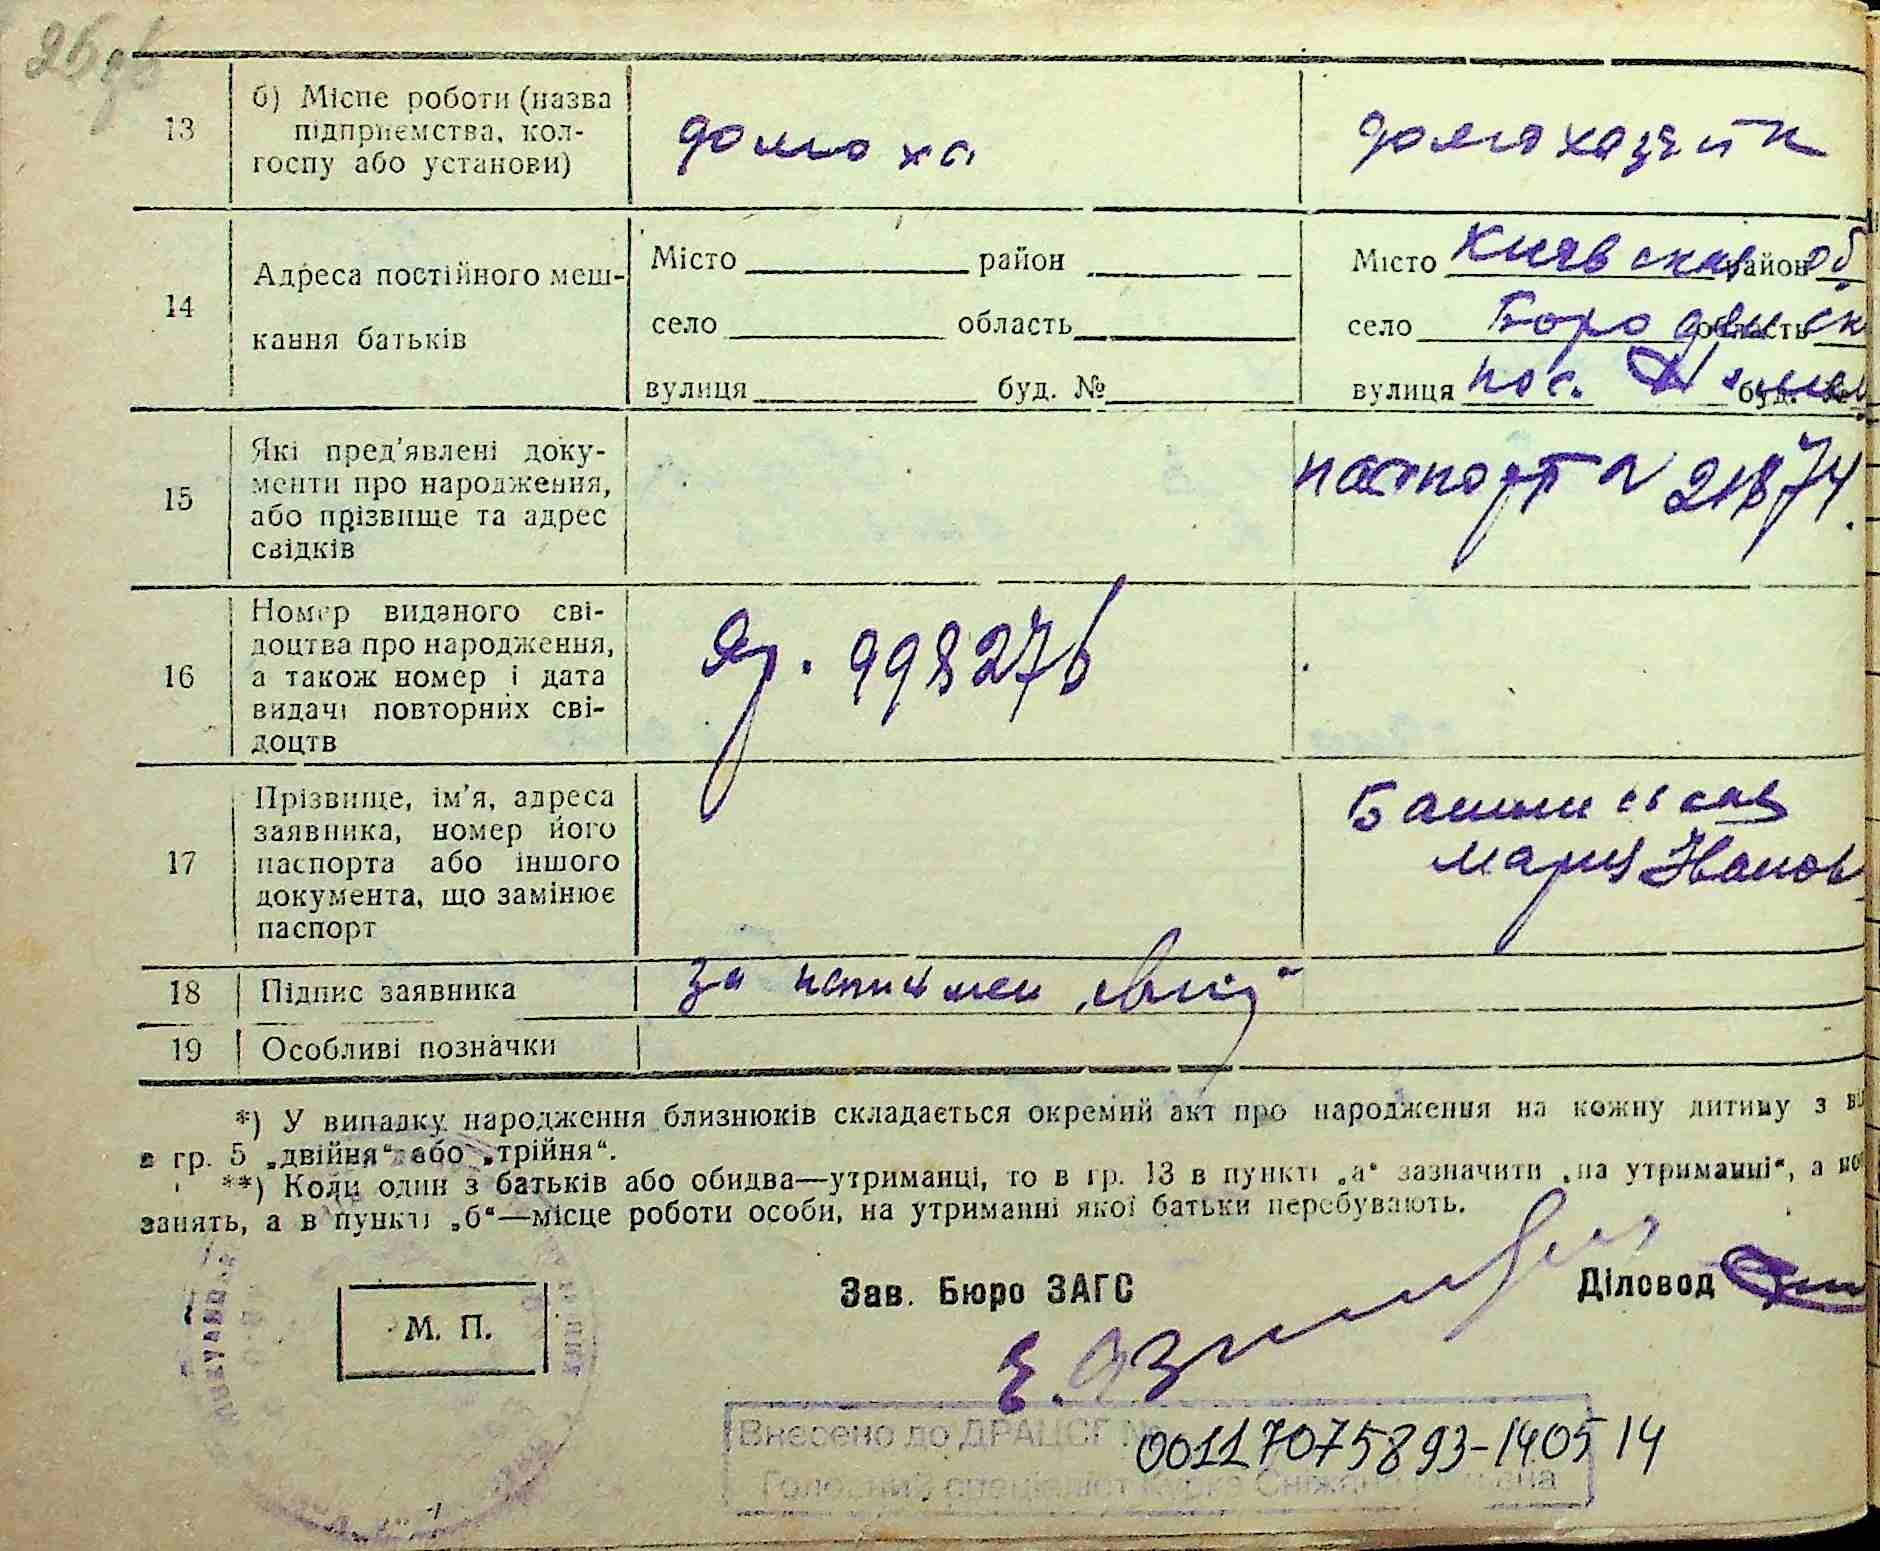 26 зв
13
б) Місце роботи (назва
підприємства, кол-
госпу або установи)
домохаз
домохазяйк
14
Адреса постійного меш-
кання батьків
Місто район
село область
вулиця буд. №
Місто Киевская район об
село Бородянск область
вулиця пос. буд.
15
Які пред'явлені доку-
менти про народження,
або прізвище та адрес
свідків
паспорт № 21874.
16
Номер виданого сві-
доцтва про народження,
а також номер і дата
видачі повторних сві-
доцтв
Яр. 998276
17
Прізвище, ім'я, адреса
заявника, номер його
паспорта або іншого
документа, що замінює
паспорт
Мария Иванов
18
Підпис заявника
за
19
Особливі позначки
*) У випадку народження близнюків складається окремий акт про народження на кожну дитину з ві
в гр. 5 „двійня“ або „трійня“.
**) Коли один з батьків або обидва—утриманці, то в гр. 13 в пункті „а“ зазначити „на утриманні“, а
занять, а в пункті „б“—місце роботи особи, на утриманні якої батьки перебувають.
Зав. Бюро ЗАГС
Діловод
М. П.
Внесено до ДРАЦСГ №
00117075893-140514
Головний спеціаліст